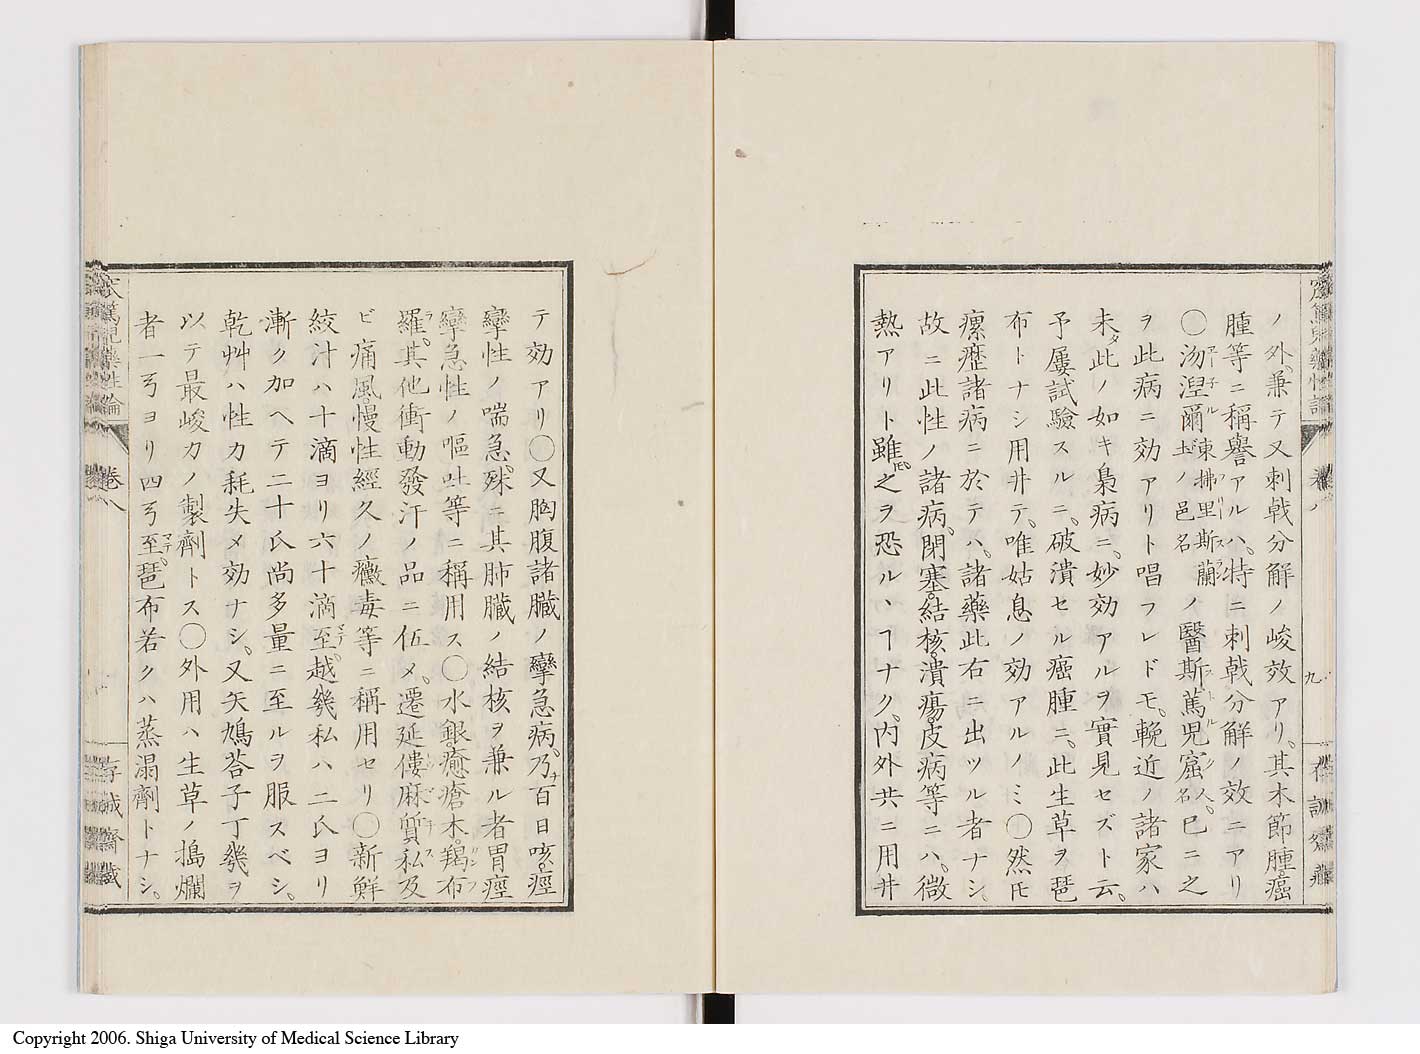 ノ外、兼テ又刺戟分解ノ峻效アリ。其木節腫。癌
腫等ニ稱譽アルハ、特ニ刺戟分解ノ效ニアリ
〇汤湼爾 東拂里斯蘭ノ邑名 ノ醫斯篤兒窟 人名 已ニ之
ヲ此病ニ効アリト唱フレドモ、輓近ノ諸家ハ
未タ此ノ如キ梟病ニ、妙効アルヲ實見セズト云。
予屢試驗スルニ、破潰セル癌腫ニ、此生草ヲ琶
布トナシ用井テ、唯姑息ノ効アルノミ〇然𪜈
瘰癧諸病ニ於テハ、諸藥此右ニ出ツル者ナシ。
故ニ此性ノ諸病、閉塞。結核。潰瘍。皮病等ニハ。微
熱アリト雖𪜈之ヲ恐ルヽヿナク、内外共ニ用井
九
テ効アリ〇又胸腹諸臓ノ攣急病、乃チ百日咳。痙
攣性ノ喘急。殊ニ其肺臓ノ結核ヲ兼ル者胃痙
攣急性ノ嘔吐等ニ稱用ス〇水銀。癒瘡木。羯布
羅。其他衝動發汗ノ品ニ伍メ。遷延僂麻質私及
ビ痛風。慢性經久ノ黴毒等ニ稱用セリ〇新鮮
絞汁ハ十滴ヨリ六十滴至マデ。越幾私ハ二氏ヨリ
漸ク加ヘテ二十氏尚多量ニ至ルヲ服スベシ。
乾艸ハ性力耗失メ効ナシ。又矢鳩荅子丁幾ヲ
以テ最峻力ノ製劑トス〇外用ハ生草ノ搗爛
者一弓ヨリ四弓至マデ。琶布若クハ蒸溻劑トナシ。
卷八
存誠齋藏